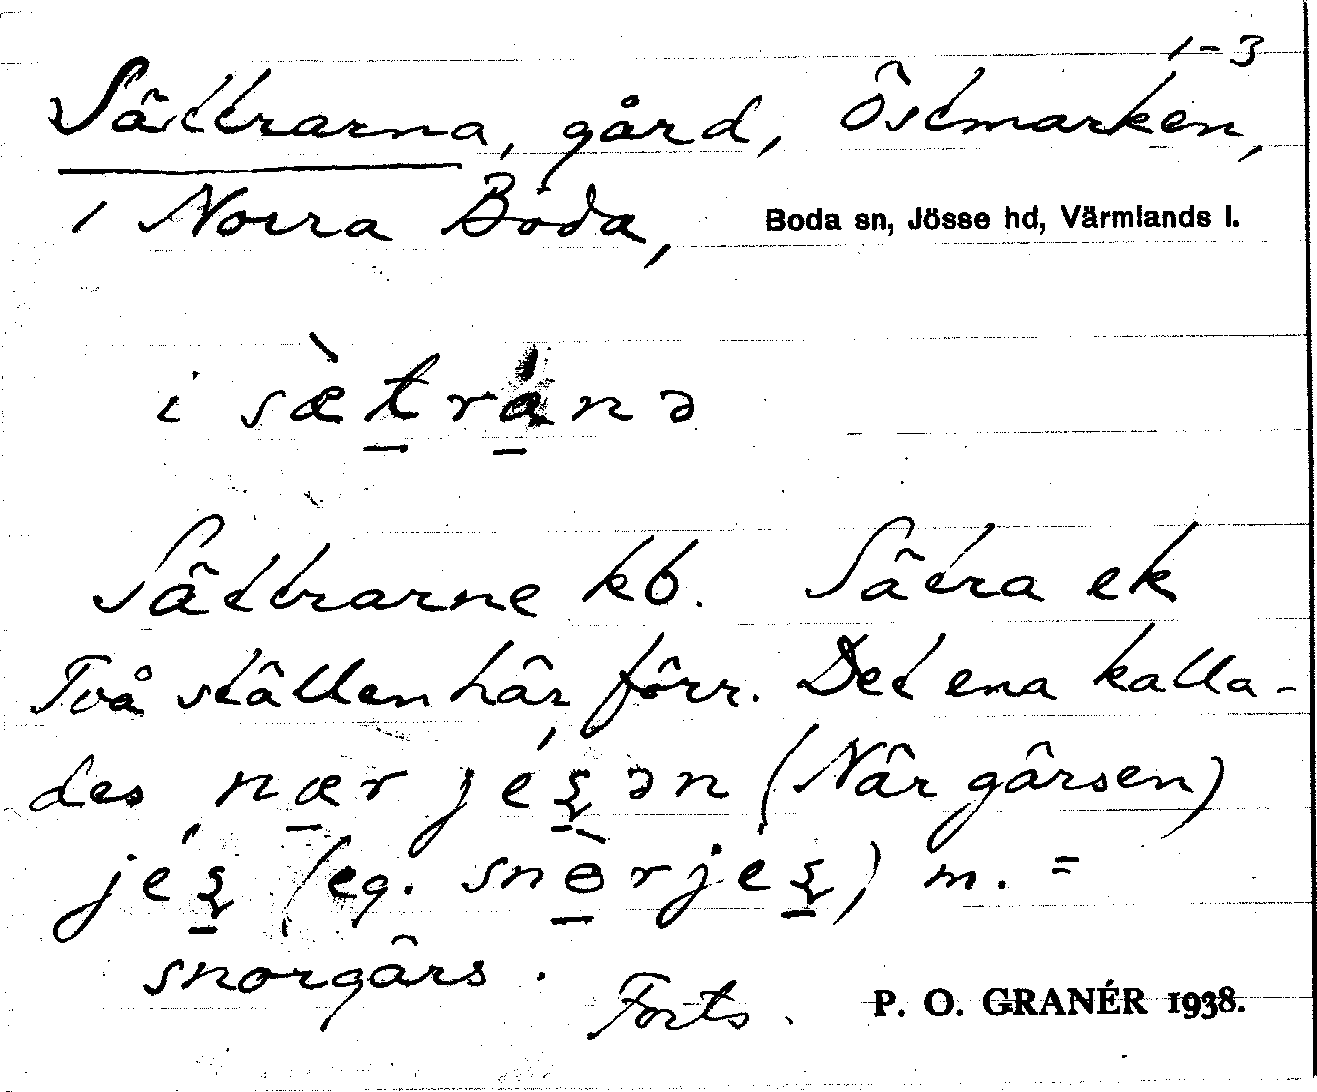 1-3
Sättrarna, gård, Östmarken,
i Norra Boda, Boda sn, Jösse hd, Värmlands l.
i sæ̀t̲rá̲nə
Sättrarne kb. Sätra ek
Två ställen här förr. Det ena kalla-
des næ̲r jéʂ̲ən (När gärsen)
jéʂ̲ (eg. snɵ̲̀rjéʂ̲) m. =
snorgärs.
Forts. P. O. GRANÉR 1938.